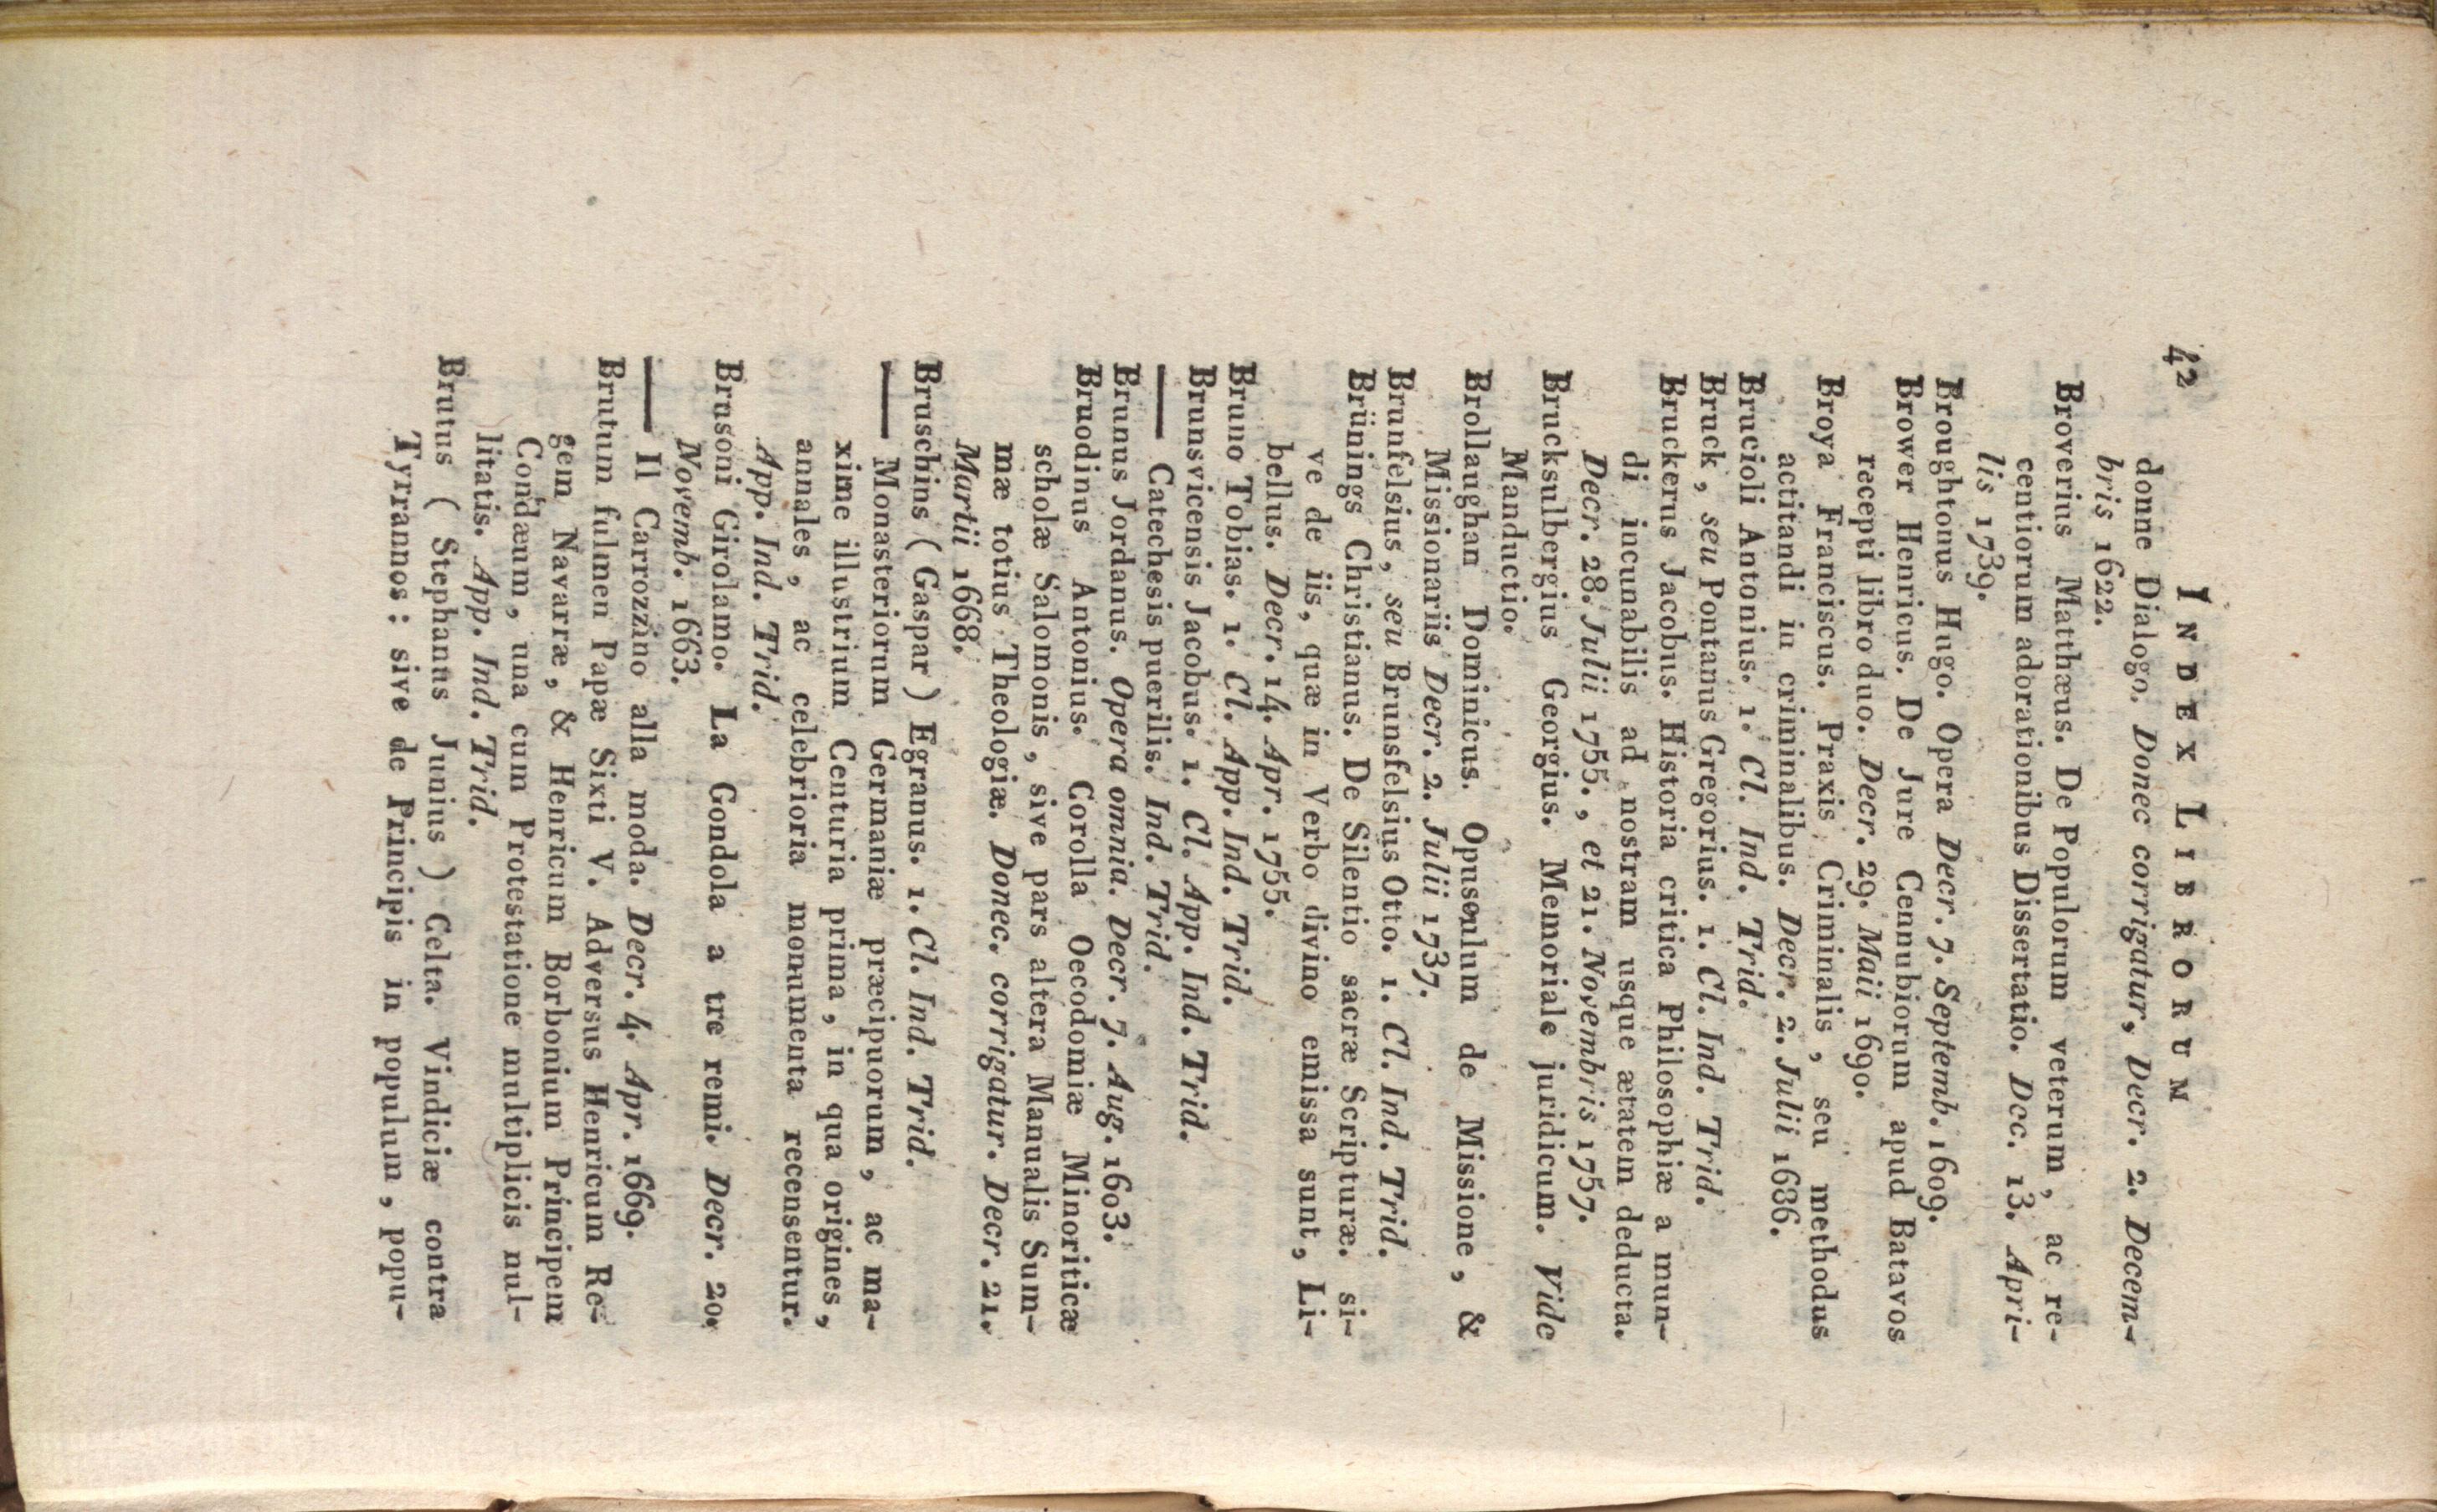 42 INDEX LIBRORUM
donne Dialogo. Donec corrigatur, Decr. 2. Decem-
bris 1622.
Broverius Matthæus. De Populorum veterum, ac re-
centiorum adorationibus Dissertatio. Dcc. 13. Apri-
lis 1739.
Broughtonus Hugo. Opera Decr. 7. Septemb. 1609.
Brower Henricus. De Jure Cennubiorum apud Batavos
recepti libro duo. Decr. 29. Maii 1690.
Broya Franciscus. Praxis Criminalis, seu methodus
actitandi in criminalibus. Decr. 2. Julii 1686.
Brucioli Antonius. 1. Cl. Ind. Trid.
Bruck, seu Pontanus Gregorius. 1. Cl. Ind. Trid.
Bruckerus Jacobus. Historia critica Philosophiæ a mun-
di incunabilis ad nostram usque ætatem deducta.
Decr. 28. Julii 1755., et 21. Novembris 1757.
Brucksulbergius Georgius. Memoriale juridicum. Vide
Manductio.
Brollaughan Dominicus. Opusculum de Missione, &
Missionariis Decr. 2. Julii 1737.
Brunfelsius, seu Brunsfelsius Otto. 1. Cl. Ind. Trid.
Brünings Christianus. De Silentio sacræ Scripturæ. si-
ve de iis, quæ in Verbo divino emissa sunt, Li-
bellus. Decr. 14. Apr. 1755.
Bruno Tobias. 1. Cl. App. Ind. Trid.
Brunsvicensis Jacobus. 1. Cl. App. Ind. Trid.
—— Catechesis puerilis. Ind. Trid.
Brunus Jordanus. Opera omnia. Decr. 7. Aug. 1603.
Bruodinus Antonius. Corolla Oecodomiæ Minoriticæ
scholæ Salomonis, sive pars altera Manualis Sum-
mæ totius Theologiæ. Donec. corrigatur. Decr. 21.
Martii 1668.
Bruschins ( Gaspar ) Egranus. 1. Cl. Ind. Trid.
—— Monasteriorum Germaniæ præcipuorum, ac ma-
xime illustrium Centuria prima, in qua origines,
annales, ac celebrioria monumenta recensentur.
App. Ind. Trid.
Brusoni Girolamo. La Gondola a tre remi. Decr. 20.
Novemb. 1663.
—— Il Carrozzino alla moda. Decr. 4. Apr. 1669.
Brutum fulmen Papæ Sixti V. Adversus Henricum Re-
gem Navarræ, & Henricum Borbonium Principem
Condæum, una cum Protestatione multiplicis nul-
litatis. App. Ind. Trid.
Brutus ( Stephanus Junius ) Celta. Vindiciæ contra
Tyrrannos: sive de Principis in populum, popu-